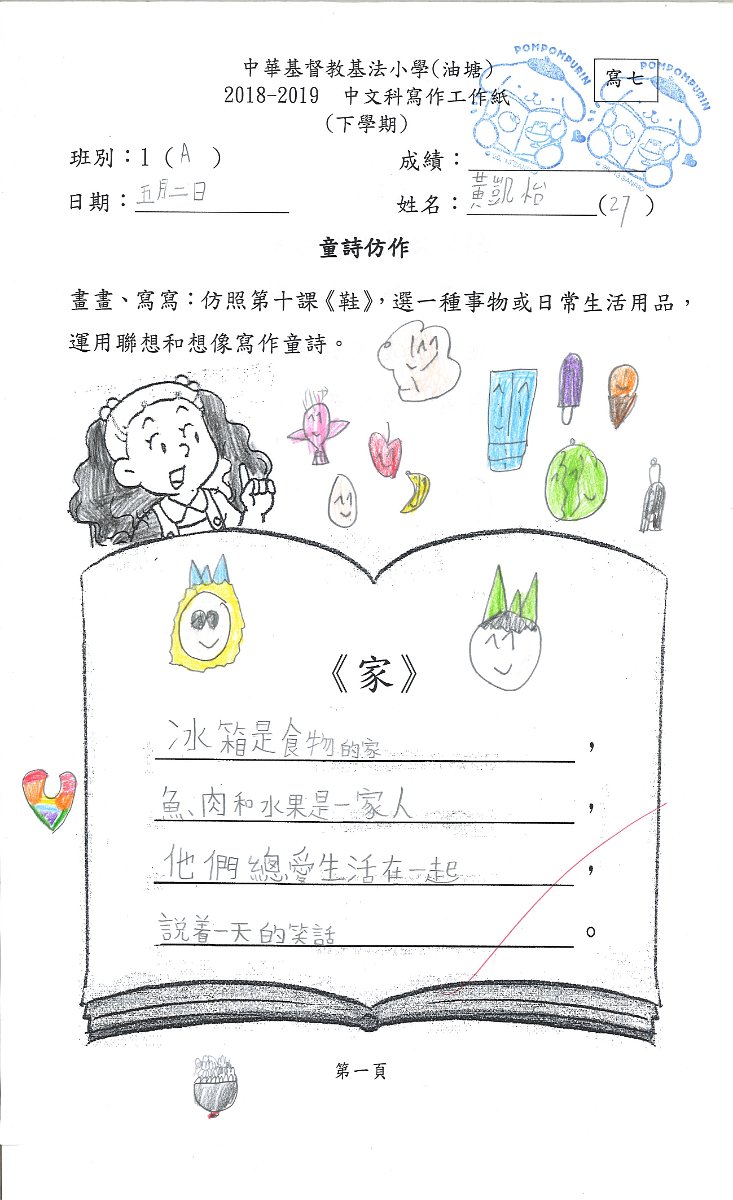 POMPOMPURIN
POMPOMPURIN
中華基督教基法小學(油塘)
寫七
2018-2019 中文科寫作工作紙
(下學期)
班別：1 ( A )
成績：
日期：五月二日
姓名：黃凱怡(27)
童詩仿作
畫畫、寫寫：仿照第十課《鞋》，選一種事物或日常生活用品，
運用聯想和想像寫作童詩。
《家》
冰箱是食物的家，
魚、肉和水果是一家人，
他們總愛生活在一起，
說着一天的笑話。
第一頁